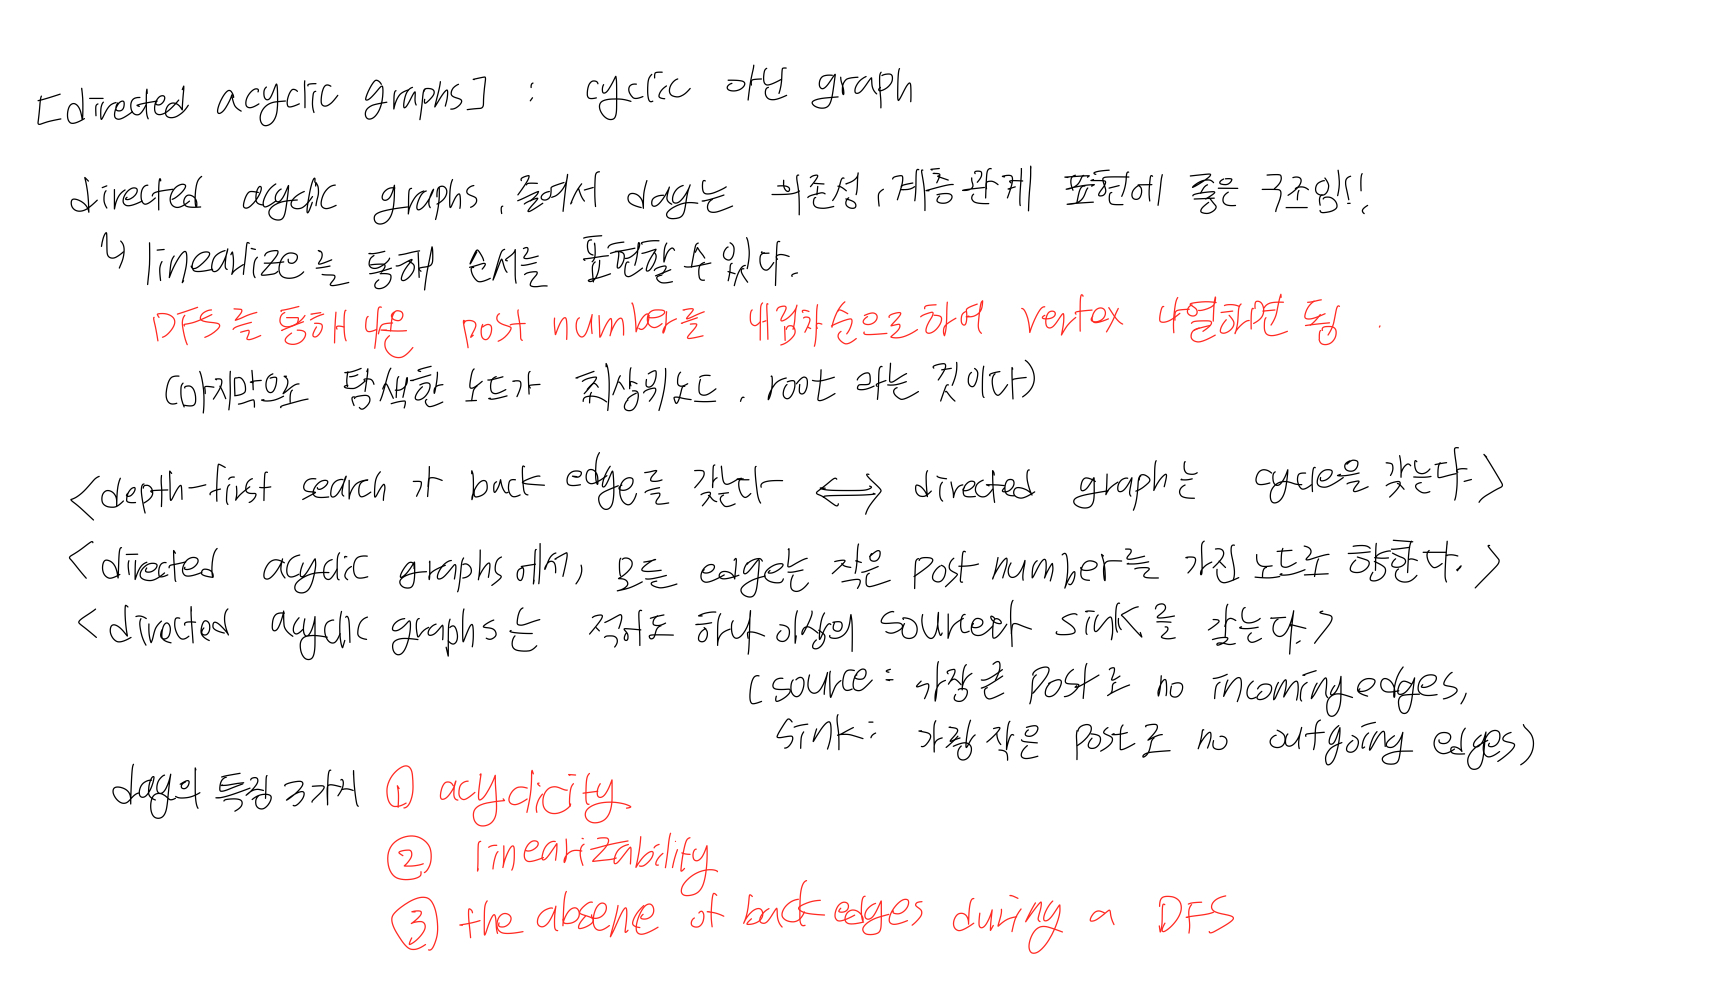 [directed acyclic graphs] : cyclic 아닌 graph
directed acyclic graphs, 줄여서 dag는 의존성, 계층관계 표현에 좋은 구조임!!
↳ linearize를 통해 순서를 표현할 수 있다.
DFS를 통해 나온 post number를 내림차순으로하여 vertex 나열하면 됨.
(마지막으로 탐색한 노드가 최상위노드, root 라는 것이다)
<depth-first search가 back edge를 갖는다 ⟺ directed graph는 cycle을 갖는다.>
<directed acyclic graphs에서, 모든 edge는 작은 post number를 가진 노드로 향한다.>
<directed acyclic graphs는 적어도 하나 이상의 source와 sink를 갖는다.>
(source: 가장 큰 post로 no incoming edges,
sink: 가장 작은 post로 no outgoing edges)
dag의 특징 3가지 ① acyclicity
② linearizability
③ the absene of back edges during a DFS